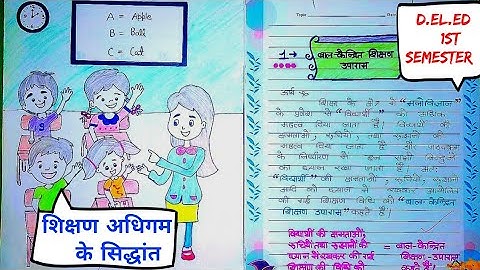 A = Apple
B = Ball
C = Cat
शिक्षण अधिगम
के सिद्धांत
Topic
Date
D.EL.ED
1ST
SEMESTER
1→
बाल-केन्द्रित शिक्षण
उपागम
अर्थ
शिक्षा के क्षेत्र में "मनोविज्ञान"
के प्रवेश से "विद्यार्थी" को अधिक
महत्व दिया जाता है। विद्यार्थी की
क्षमताओं, रुचियों, तथा रुझानों को
महत्व दिया जाता है और पाठ्यक्रम
के निर्धारण में इन सभी बिन्दुओं
का ध्यान रखा जाता है।
"विद्यार्थी" की क्षमताओं, रुचियों, रुझानों
आदि को ध्यान में रखकर आयोजित
की गई शिक्षण विधि को "बाल-केन्द्रित
शिक्षण उपागम" कहते हैं।
विद्यार्थी की क्षमताओं,
रुचियों तथा रुझानों को
ध्यान में रखकर की गई = बाल-केन्द्रित
शिक्षण की विधि को शिक्षण-उपागम
कहते हैं।